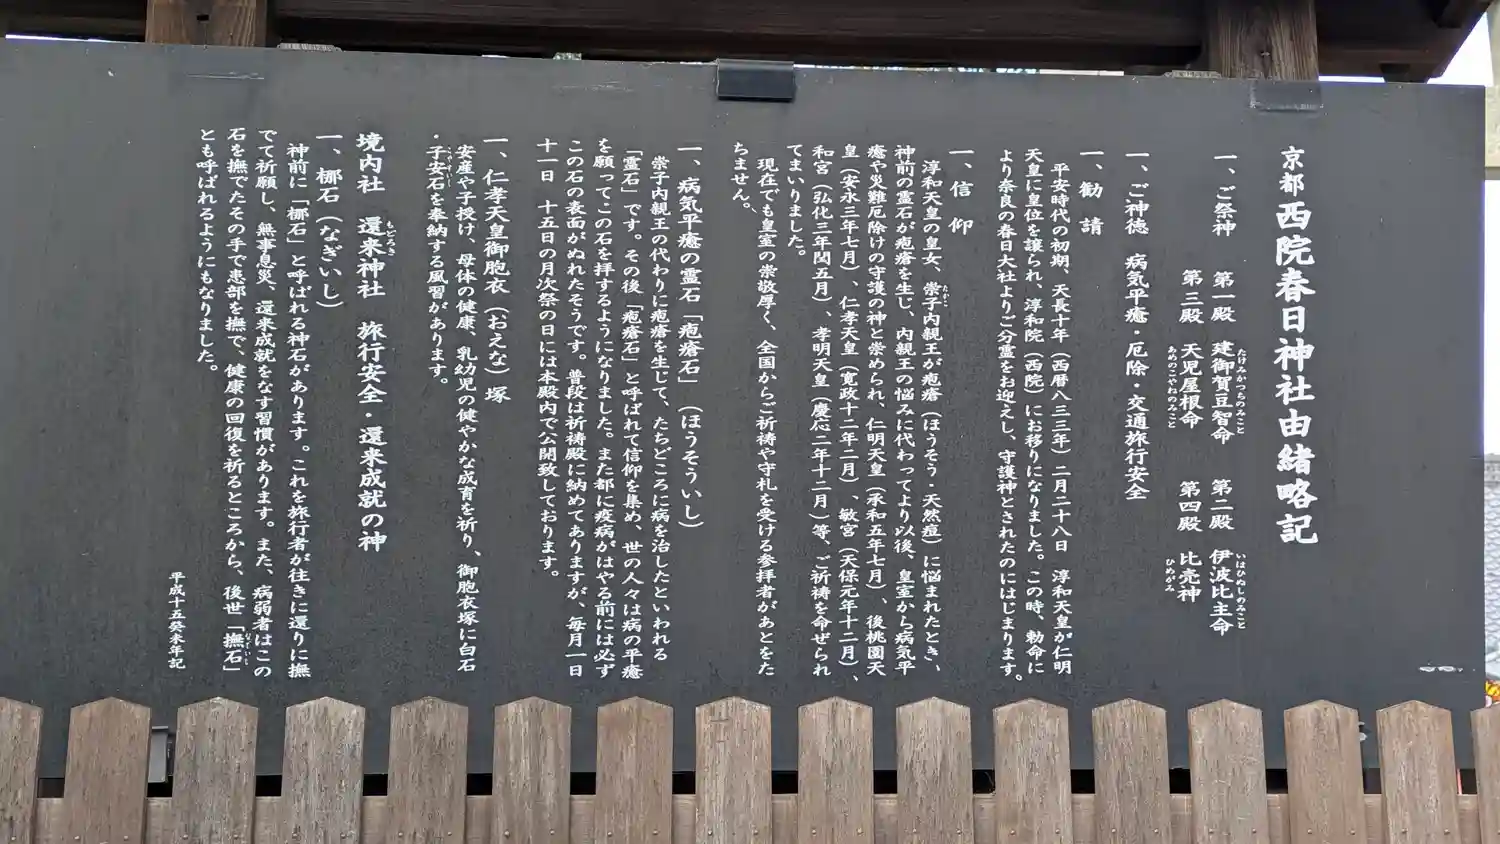 京都西院春日神社由緒略記
一、ご祭神　第一殿　建御賀豆智命　第二殿　伊波比主命
たけみかつちのみこと　いはひぬしのみこと
第三殿　天児屋根命　第四殿　比売神
あめのこやねのみこと　ひめがみ
一、ご神徳　病気平癒・厄除・交通旅行安全
一、勧請
平安時代の初期、天長十年（西暦八三三年）二月二十八日　淳和天皇が仁明
天皇に皇位を譲られ、淳和院（西院）にお移りになりました。この時、勅命に
より奈良の春日大社よりご分霊をお迎えし、守護神とされたのにはじまります。
一、信仰
淳和天皇の皇女、崇子内親王が疱瘡（ほうそう・天然痘）に悩まれたとき、
たかこ
神前の霊石が疱瘡を生じ、内親王の悩みに代わってより以後、皇室から病気平
癒や災難厄除けの守護の神と崇められ、仁明天皇（承和五年七月）、後桃園天
皇（安永三年七月）、仁孝天皇（寛政十二年二月）、敏宮（天保元年十二月）、
和宮（弘化三年閏五月）、孝明天皇（慶応二年十二月）等、ご祈祷を命ぜられ
てまいりました。
現在でも皇室の崇敬厚く、全国からご祈祷や守札を受ける参拝者があとをた
ちません。
一、病気平癒の霊石「疱瘡石」（ほうそういし）
崇子内親王の代わりに疱瘡を生じて、たちどころに病を治したといわれる
「霊石」です。その後「疱瘡石」と呼ばれて信仰を集め、世の人々は病の平癒
を願ってこの石を拝するようになりました。また都に疫病がはやる前には必ず
この石の表面がぬれたそうです。普段は祈祷殿に納めてありますが、毎月一日
十一日　十五日の月次祭の日には本殿内で公開致しております。
一、仁孝天皇御胞衣（おえな）塚
安産や子授け、母体の健康、乳幼児の健やかな成育を祈り、御胞衣塚に白石
・子安石を奉納する風習があります。
こやすいし
境内社　還来神社　旅行安全・還来成就の神
もどろき
一、梛石（なぎいし）
神前に「梛石」と呼ばれる神石があります。これを旅行者が往きに還りに撫
でて祈願し、無事息災、還来成就をなす習慣があります。また、病弱者はこの
石を撫でたその手で患部を撫で、健康の回復を祈るところから、後世「撫石」
なでいし
とも呼ばれるようにもなりました。
平成十五癸未年記